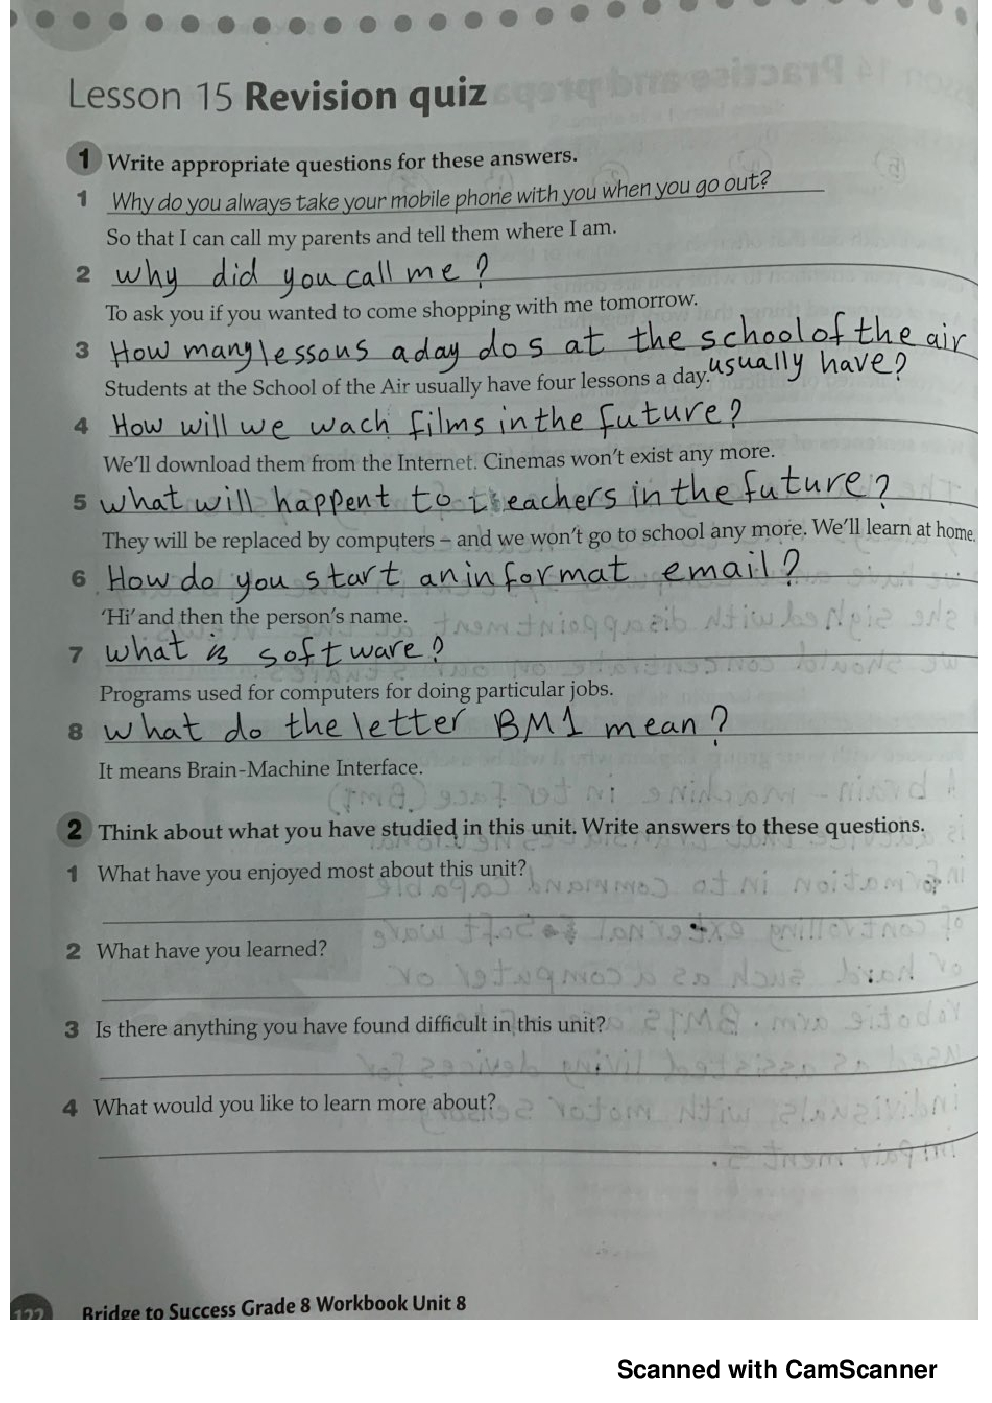 Lesson 15 Revision quiz
1 Write appropriate questions for these answers.
1 Why do you always take your mobile phone with you when you go out?
So that I can call my parents and tell them where I am.
2 why did you call me?
To ask you if you wanted to come shopping with me tomorrow.
3 How many lessous a day do s at the school of the air
usually have?
Students at the School of the Air usually have four lessons a day.
4 How will we wach films in the future?
We'll download them from the Internet. Cinemas won't exist any more.
5 what will happent to teachers in the future?
They will be replaced by computers – and we won't go to school any more. We'll learn at home.
6 How do you start an informat email?
'Hi' and then the person's name.
7 what is software?
Programs used for computers for doing particular jobs.
8 what do the letter BM1 mean?
It means Brain-Machine Interface.
2 Think about what you have studied in this unit. Write answers to these questions.
1 What have you enjoyed most about this unit?
2 What have you learned?
3 Is there anything you have found difficult in this unit?
4 What would you like to learn more about?
122 Bridge to Success Grade 8 Workbook Unit 8
Scanned with CamScanner